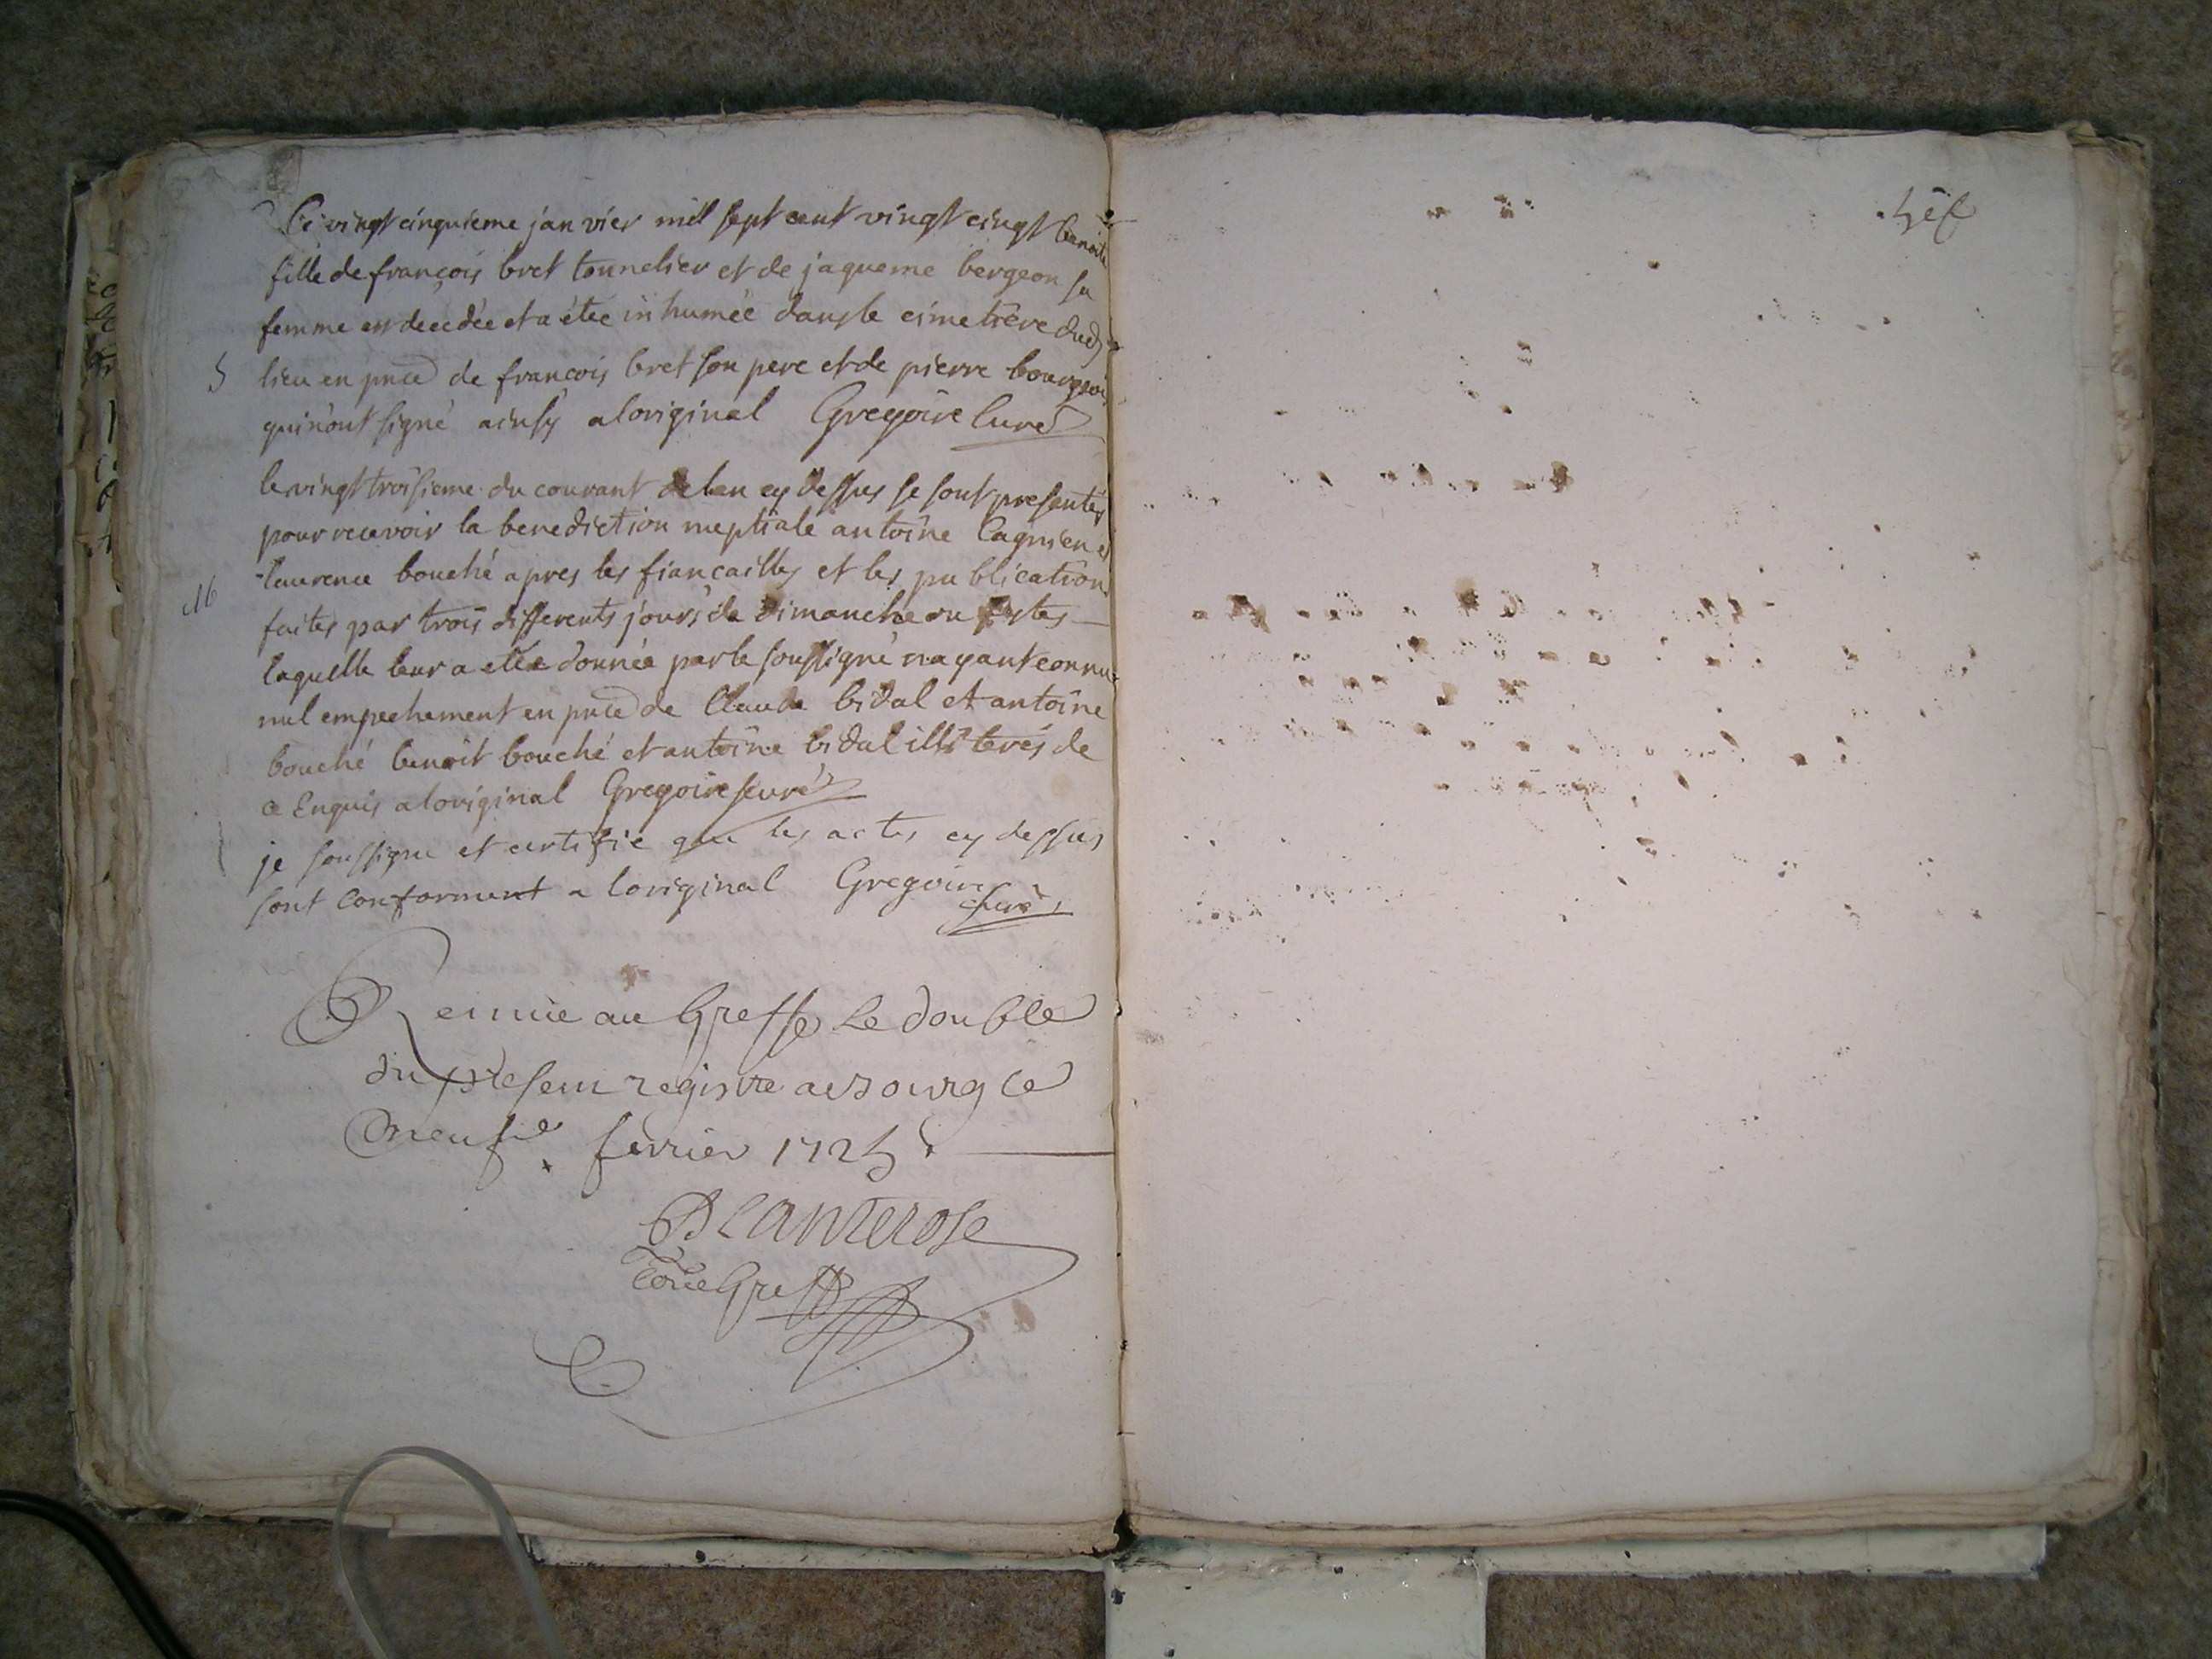 Ce vingt cinquieme janvier mil sept cent vingt cingt benoite
fille de françois bret tonnelier et de jaqueme bergeon sa
femme est decedée et a étée inhumée dans le cimetiere dud
S lieu en pnce de francois bret son pere et de pierre bourgeois
qui n'ont signé ainsy a loriginal Gregoire Curé
le vingt troisieme du courant de lan cy dessus se sont presentés
pour recevoir la benediction nuptiale antoine Cagnien et
M laurence bouché apres les fiancailles et les publications
faites par trois differents jours de Dimanche ou festes
laquelle leur a etée donnée par le soussigné n'ayant connu
nul empechement en pnce de Claude bidal et antoine
bouché benoit bouché et antoine bidal illiterés de
ce Enquis a loriginal Gregoire Curé
je soussigne et certifie que les actes cy dessus
sont conforment a loriginal Gregoire
Curé
Remue au Greffe Le double
du present registre a Bourg Ce
neufie fevrier 1725
Blanterose
Greff